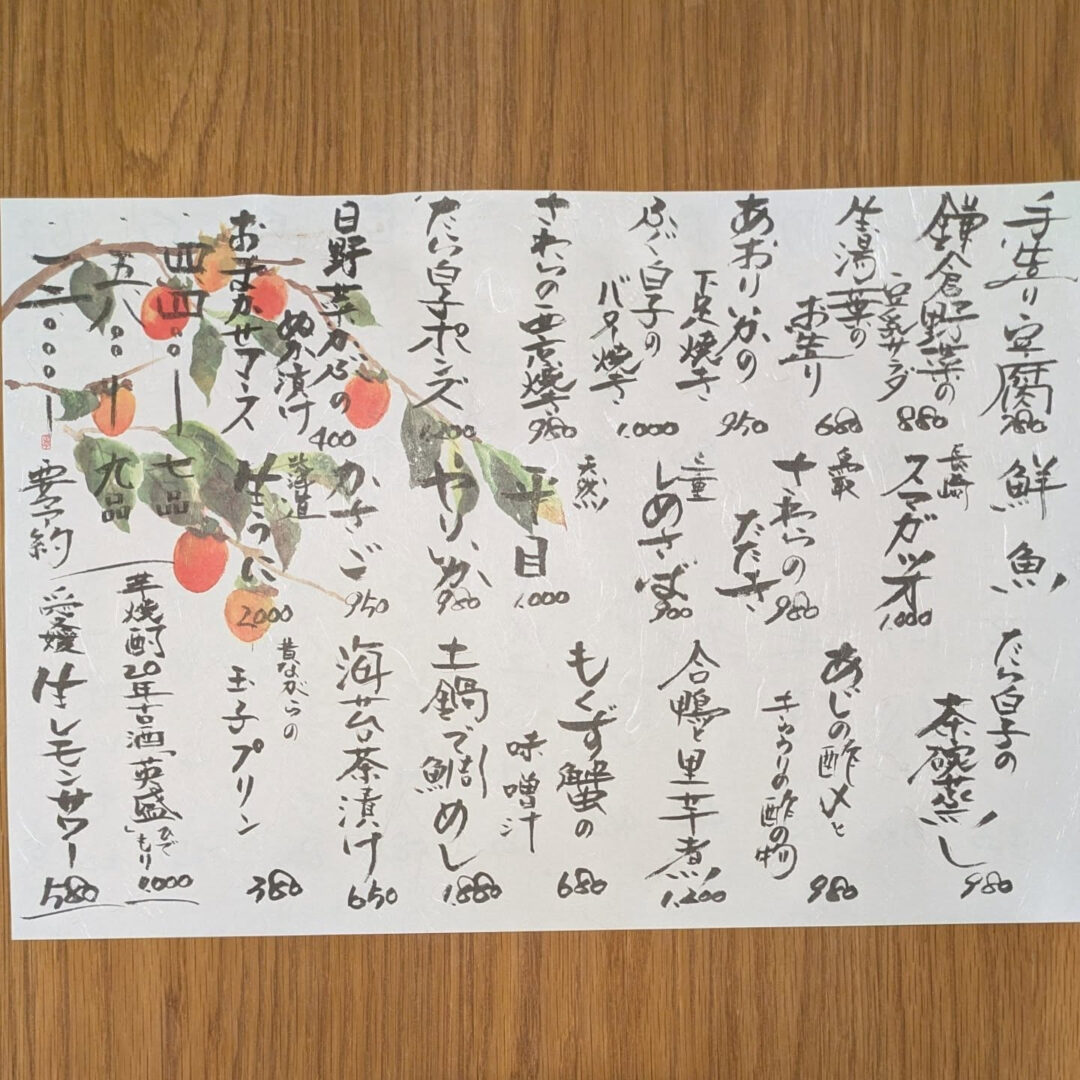 手造り豆腐
780
鎌倉野菜の
豆乳サラダ
880
生湯葉の
お造り
680
あおりいかの
下足焼き
950
ふぐ白子の
バター焼き
1.000
さわらの西京焼き
980
たら白子ポンズ
1.200
日野菜かぶの
ぬか漬け
400
おまかせコース
四四〇〇ー
五八〇〇
一二.〇〇〇ー
鮮魚
長崎
スマガツオ
1.000
鳥取
さわらの
たたき
980
三重
しめさば
900
天然
平目
1.000
やりいか
980
かすご
950
北海道
生うに
2.000
七品
十九品
要予約
たら白子の
茶碗蒸し
980
あじの酢〆と
きゅうりの酢の物
980
合鴨と里芋煮
1.200
もくず蟹の
味噌汁
680
土鍋で鯛めし
1.880
海苔茶漬け
650
昔ながらの
玉子プリン
380
芋焼酎20年古酒「英盛」
ひでもり
1.000
愛媛
生レモンサワー
580